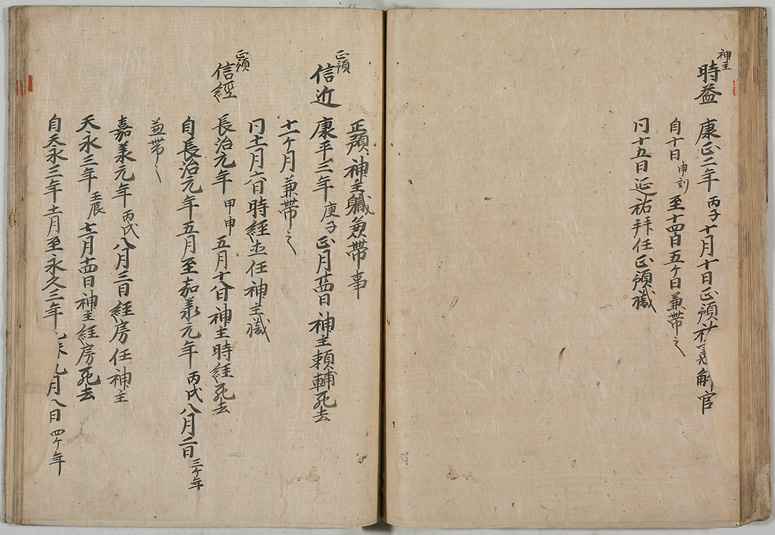 神主
時益 康正二年丙子十月十日正預祐 解官
自十日申刻至十四日五ケ日兼帯之
同十五日延祐拝任正預職
正預神主職兼帯事
正預
信近 康平三年庚子正月廿四日神主頼輔死去
十一ケ月兼帯之
同十一月六日時経 任神主職
正預
信経 長治元年甲申五月十八日神主時経死去
自長治元年五月至嘉承元年丙戌八月二日三ケ年
兼帯之
嘉承元年丙戌八月三日経房任神主
天永三年壬辰十一月十四日神主経房死去
自天永三年十一月至永久三年乙未九月八日四ケ年